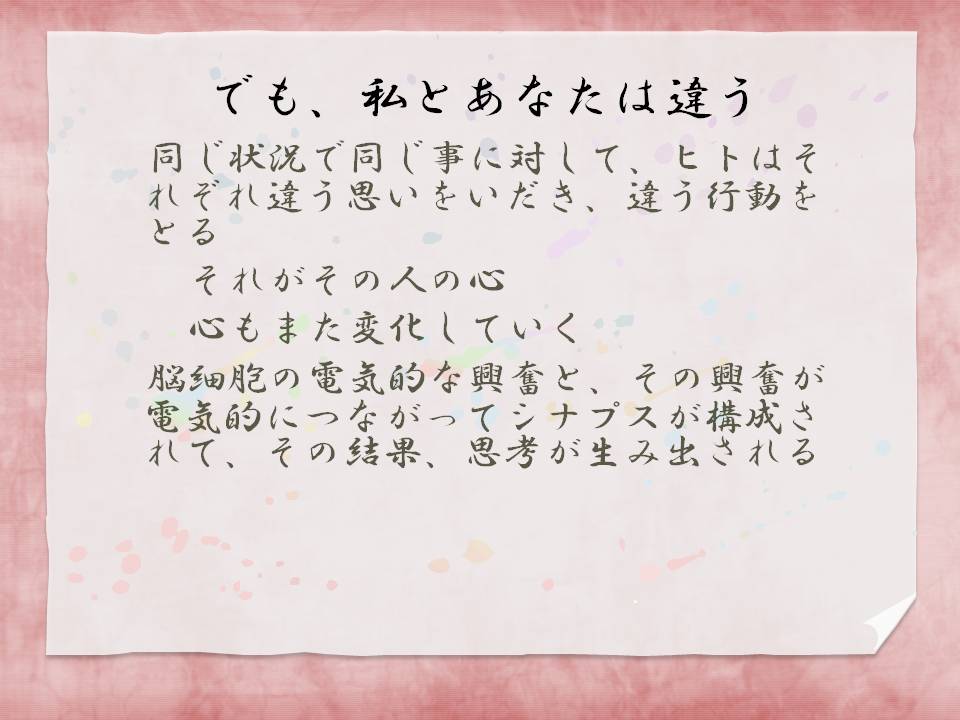 でも、私とあなたは違う
同じ状況で同じ事に対して、ヒトはそ
れぞれ違う思いをいだき、違う行動を
とる
それがその人の心
心もまた変化していく
脳細胞の電気的な興奮と、その興奮が
電気的につながってシナプスが構成さ
れて、その結果、思考が生み出される